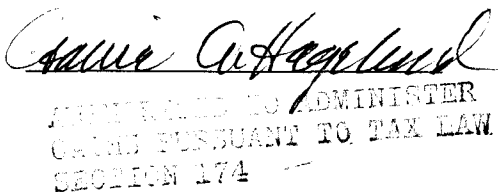 Connie A. Hagelund
AUTHORIZED TO ADMINISTER
OATHS PURSUANT TO TAX LAW
SECTION 174